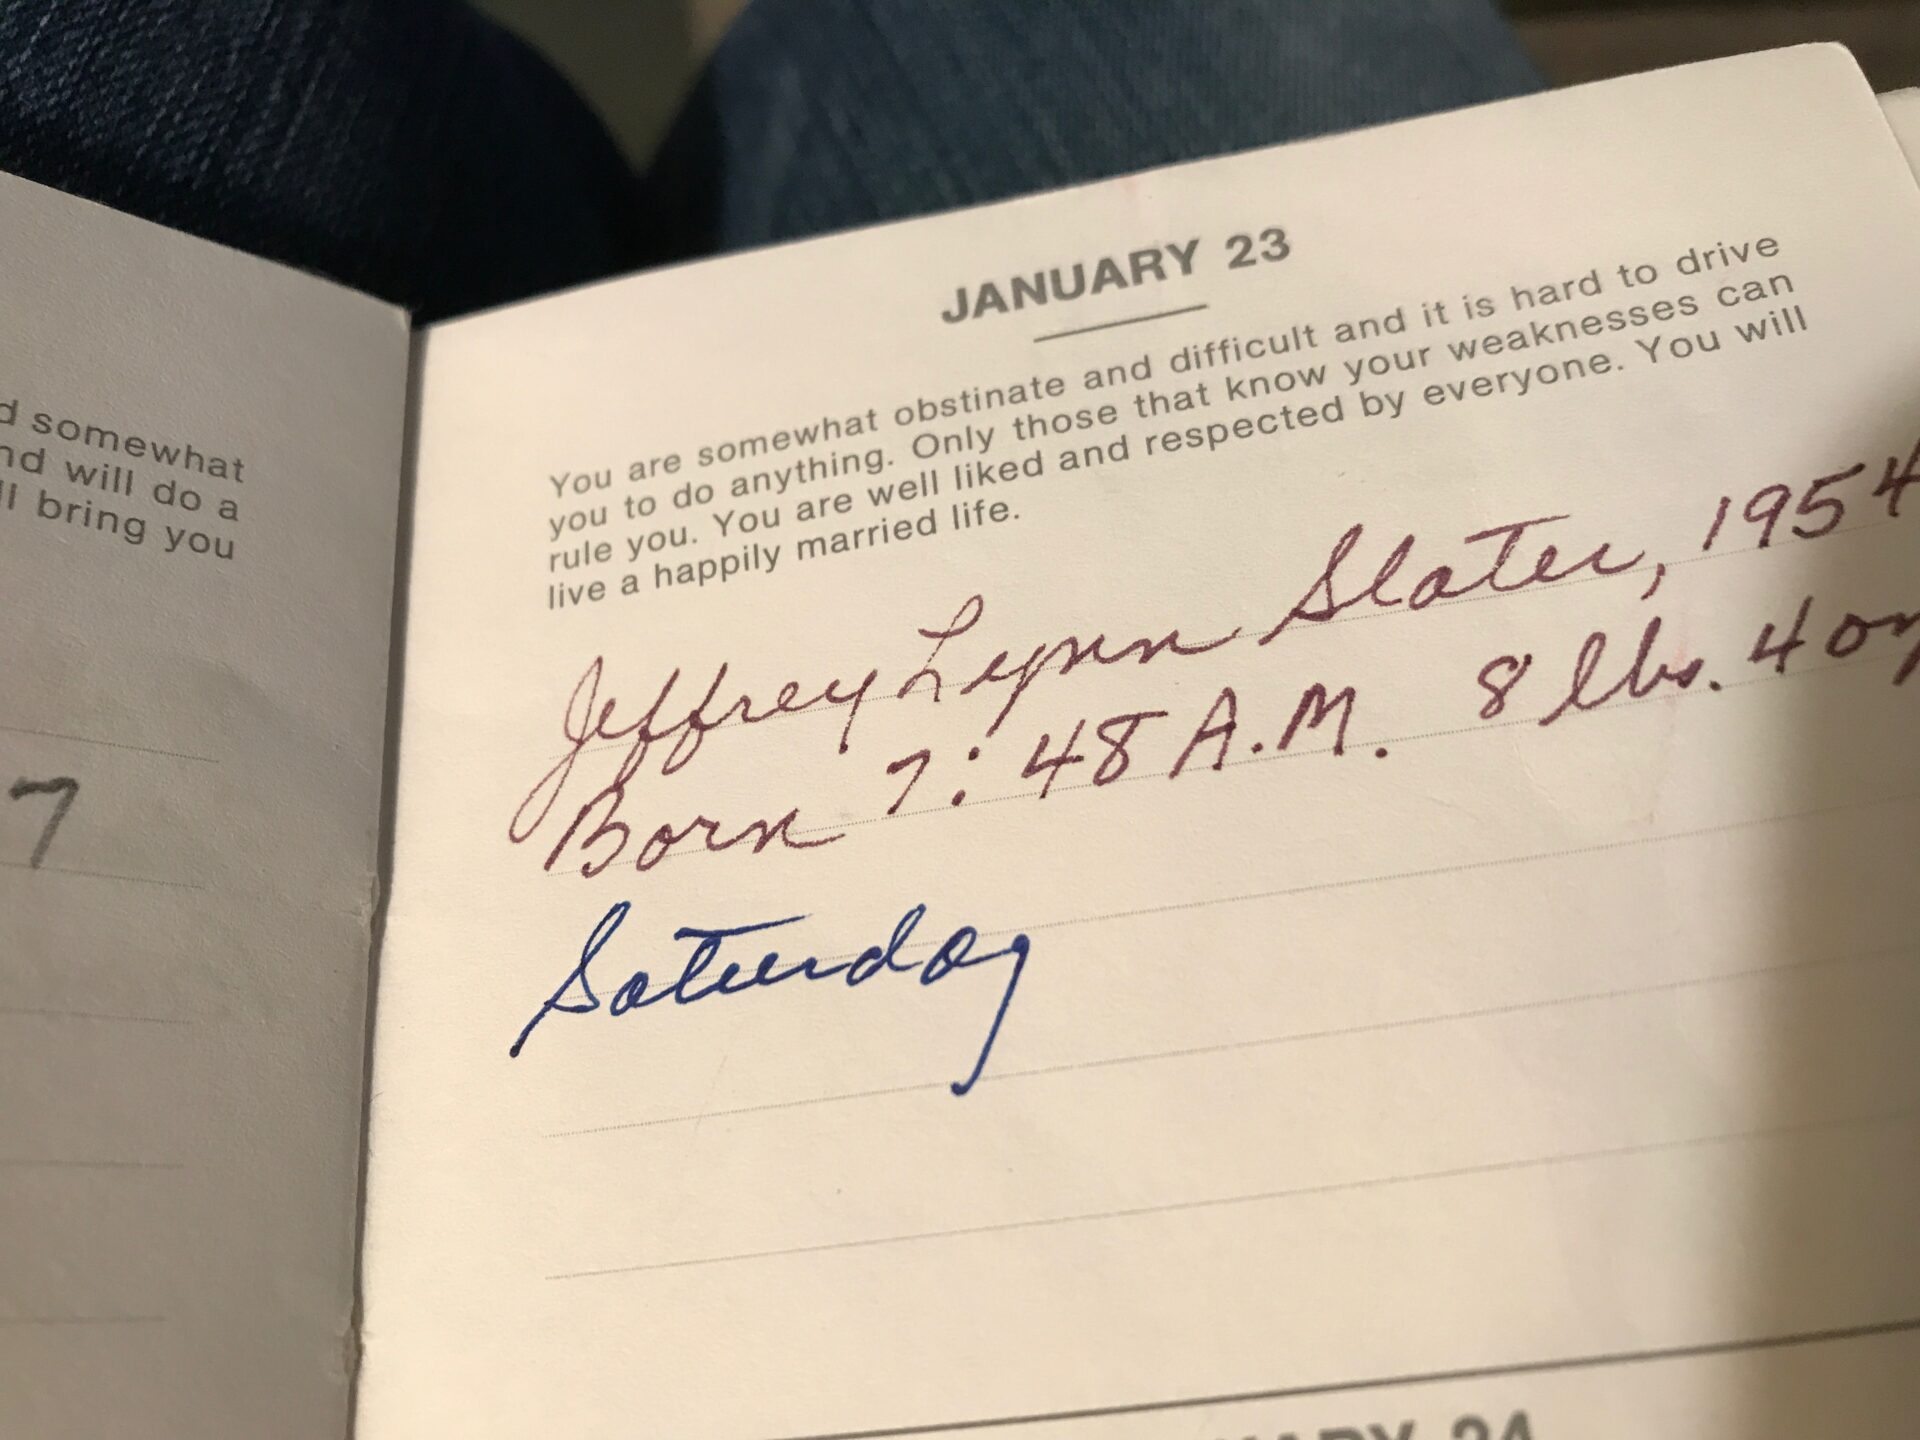 d somewhat
nd will do a
ll bring you
7
JANUARY 23
You are somewhat obstinate and difficult and it is hard to drive
you to do anything. Only those that know your weaknesses can
rule you. You are well liked and respected by everyone. You will
live a happily married life.
Jeffrey Lynn Slater, 1954
Born 7:48 A.M. 8 lbs. 4 oz
Saturday
ARY 24